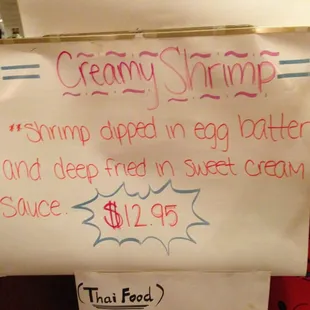 Creamy Shrimp
"shrimp dipped in egg batter
and deep fried in sweet cream
sauce.
$12.95
(Thai Food)